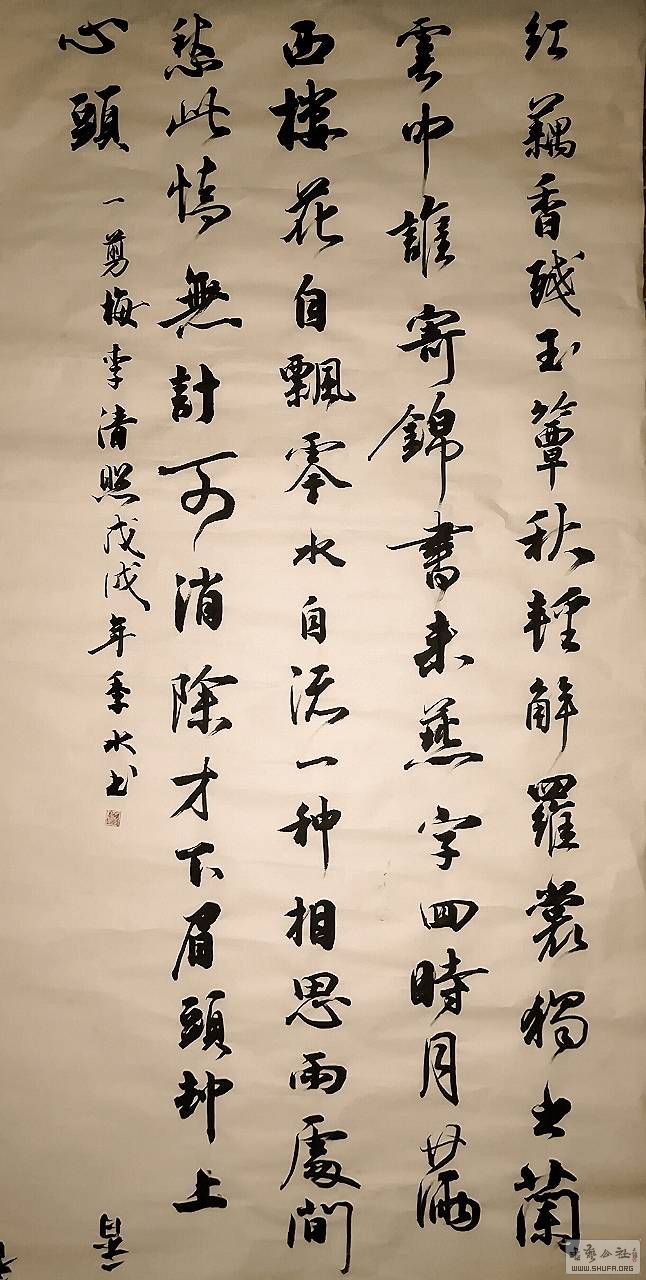 紅藕香殘玉簟秋輕解羅裳獨上蘭
雲中誰寄錦書来燕字回時月滿
西樓花自飄零水自流一种相思兩處閒
愁此情無計可消除才下眉頭却上
心頭
一剪梅李清照戊戌年季水书
书艺公社
WWW.SHUFA.ORG